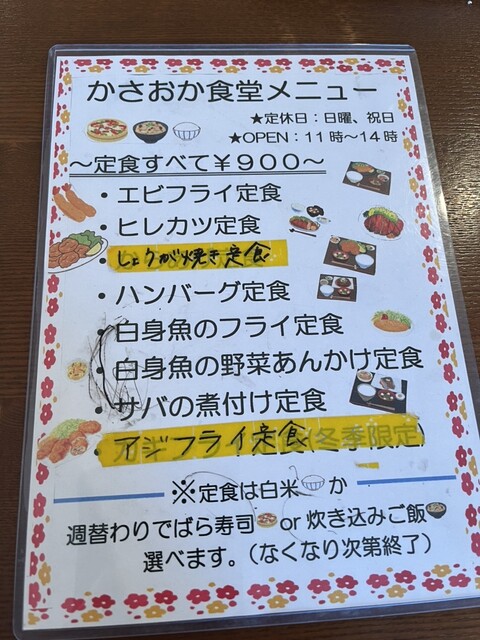 かさおか食堂メニュー
★定休日：日曜、祝日
★OPEN：11時～14時
～定食すべて￥900～
・エビフライ定食
・ヒレカツ定食
・しょうが焼き定食
・ハンバーグ定食
・白身魚のフライ定食
・白身魚の野菜あんかけ定食
・サバの煮付け定食
・アジフライ定食(冬季限定)
※定食は白米か
週替わりでばら寿司or炊き込みご飯
選べます。（なくなり次第終了）